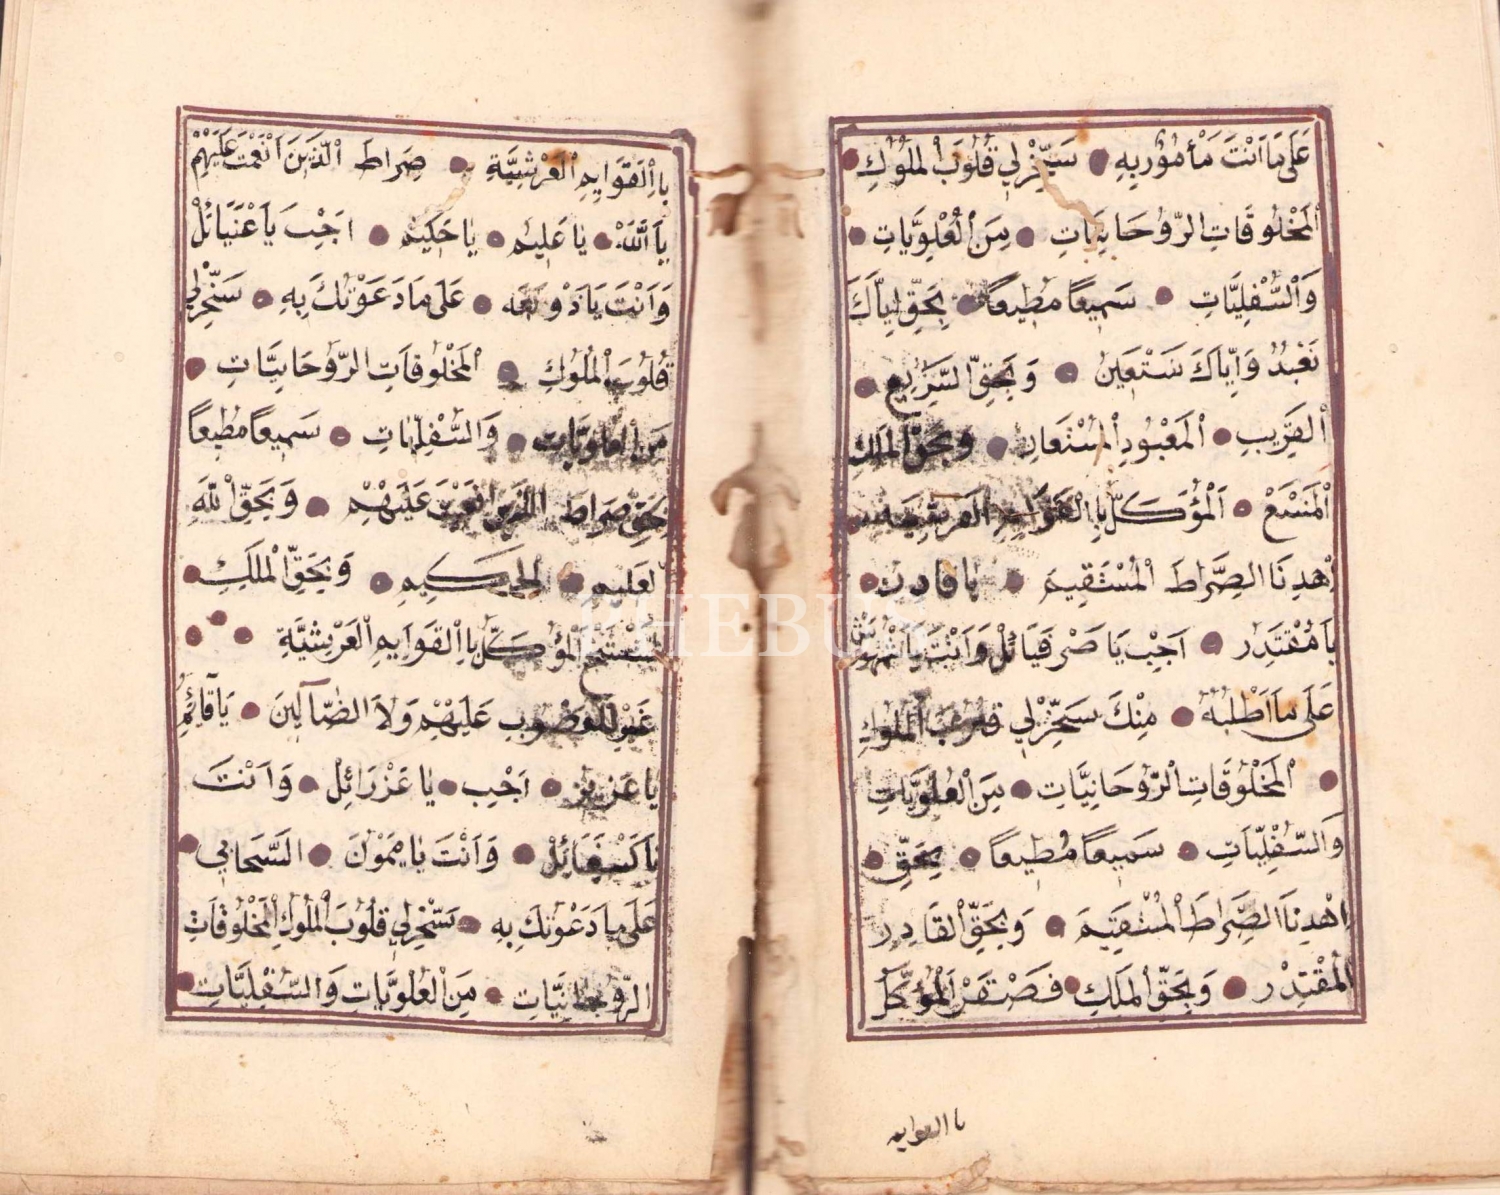 عَلَى مَا اَنْتَ مَأْمُوُربِهِ سَخِّرْلِي قُلُوبَ الْمُلُوكِ
الْمَخْلُوقَاتِ الرُّوحَانِيَّاتِ مِنَ الْعُلْوِيَّاتِ
وَالسُّفْلِيَّاتِ سَمِيعًا مُطِيعًا بِحَقِّ اِيَّاكَ
نَعْبُدُ وَاِيَّاكَ نَسْتَعِينُ وَبِحَقِّ السَّرِيعِ
الْقَرِيبِ الْمَعْبُودِ الْمُسْتَعَانِ وَبِحَقِّ الْمَلَكِ
الْمُؤَكَّلِ بِاالْقَوَايِمِ الْعَرْشِيَّةِ
اِهْدِنَا الصِّرَاطَ الْمُسْتَقِيمَ يَا قَادِرُ
يَا مُقْتَدِرُ اَجِبْ يَا صَرْفَيَائِلُ وَاَنْتَ يَا شَمْهُورَشْ
عَلَى مَا اَطْلُبُهُ مِنْكَ سَخِّرْلِي قُلُوبَ الْمُلُوكِ
الْمَخْلُوقَاتِ الرُّوحَانِيَّاتِ مِنَ الْعُلْوِيَّاتِ
وَالسُّفْلِيَّاتِ سَمِيعًا مُطِيعًا بِحَقِّ
اِهْدِنَا الصِّرَاطَ الْمُسْتَقِيمَ وَبِحَقِّ الْقَادِرِ
الْمُقْتَدِرِ وَبِحَقِّ الْمَلَكِ الْمُؤَكَّلِ
باالقوايم
بِاالْقَوَايِمِ الْعَرْشِيَّةِ صِرَاطَ الَّذِينَ اَنْعَمْتَ عَلَيْهِمْ
يَا اَللهُ يَا عَلِيمُ يَا حَكِيمُ اَجِبْ يَا عَنْيَائلْ
وَاَنْتَ يَا عَلَى مَا دَعَوْتُكَ بِهِ سَخِّرْلِي
قُلُوبَ الْمُلُوكِ الْمَخْلُوقَاتِ الرُّوحَانِيَّاتِ
مِنَ الْعُلْوِيَّاتِ وَالسُّفْلِيَّاتِ سَمِيعًا مُطِيعًا
بِحَقِّ صِرَاطَ الَّذِينَ اَنْعَمْتَ عَلَيْهِمْ وَبِحَقِّ اللهِ
الْعَلِيمِ الْحَكِيمِ وَبِحَقِّ الْمَلَكِ
الْمُؤَكَّلِ بِاالْقَوَايِمِ الْعَرْشِيَّةِ
غَيْرِ الْمَغْضُوبِ عَلَيْهِمْ وَلَا الضَّآلِّينَ يَا قَآئِمُ
يَا عَزِيزُ اَجِبْ يَا عَزْرَائِلُ وَاَنْتَ
يَا كَسْفَيَائِلُ وَاَنْتَ يَا مَيْمُونَ السَّحَابِي
عَلَى مَا دَعَوْتُكَ بِهِ سَخِّرْلِي قُلُوبَ الْمُلُوكِ الْمَخْلُوقَاتِ
الرُّوحَانِيَّاتِ مِنَ الْعُلْوِيَّاتِ وَالسُّفْلِيَّاتِ
PHEBUS